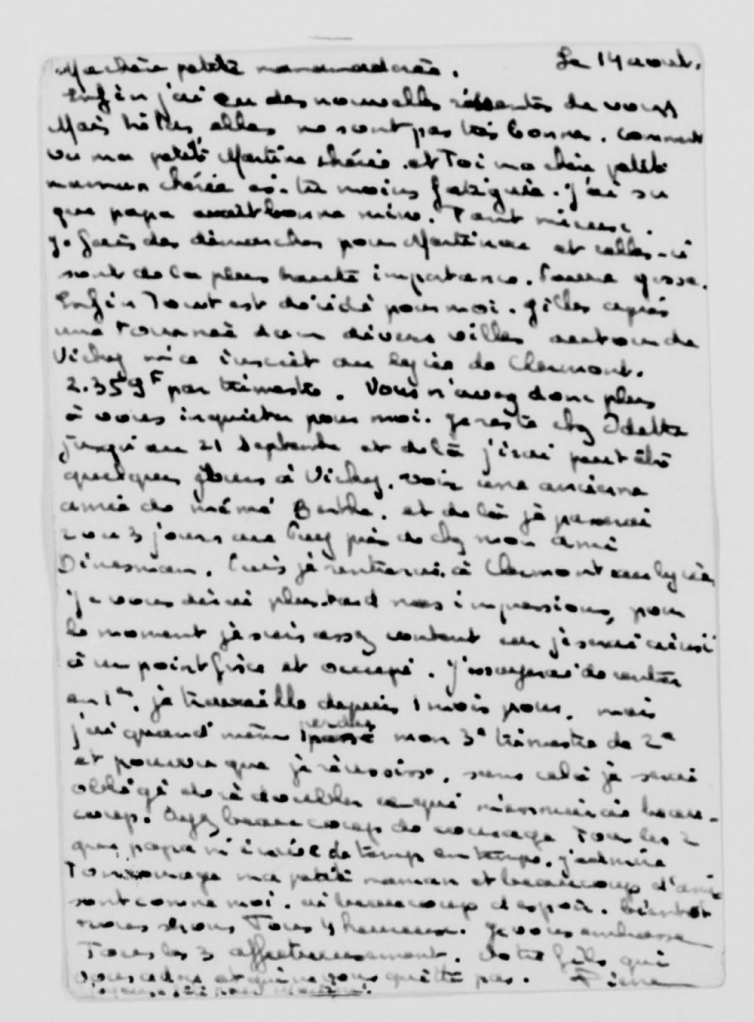 Ma chère petite maman adorée. Le 14 août.
Enfin j'ai eu des nouvelles récentes de vous
Mais hélas, elles ne sont pas très bonnes. Comment
va ma petite Martine chérie. et Toi ma chère petite
maman chérie es-tu moins fatiguée. J'ai su
que papa avait bonne mine. Tant mieux.
Je fais des démarches pour Martineau et celles-ci
sont de la plus haute importance. Pauvre gosse.
Enfin Tout est décidé pour moi. Gilles après
une Tournée dans divers villes autour de
Vichy m'a inscrit au lycée de Clermont.
2.359F par trimestre. Vous n'avez donc plus
à vous inquiéter pour moi. Je reste chez Odette
jusqu'au 21 Septembre et de là j'irai peut être
quelques jours à Vichy. voir une ancienne
amie de mémé Berthe. et de là je passerai
2 ou 3 jours au Puy près de chez mon ami
Puis je rentrerai à Clermont au lycée
je vous dirai plus tard mes impressions, pour
le moment je suis assez content car je serai ainsi
à un point fixe et occupé. J'essayerai de rentrer
en 1ère, je travaille depuis 1 mois pour, mais
j'ai quand même perdu mon 3e trimestre de 2e
et pourvu que je réussisse, sans cela je serai
obligé de redoubler ce qui m'ennuierai beau-
coup. Ayez beaucoup de courage Tous les 2
que papa m'écrive de temps en temps. j'admire
Ton courage ma petite maman et beaucoup d'amis
sont comme moi. ai beaucoup d'espoir. Bientôt
nous serons Tous 4 heureux. Je vous embrasse
Tous les 3 affectueusement. Votre fils qui
vous adore et qui ne vous quitte pas. Pierre